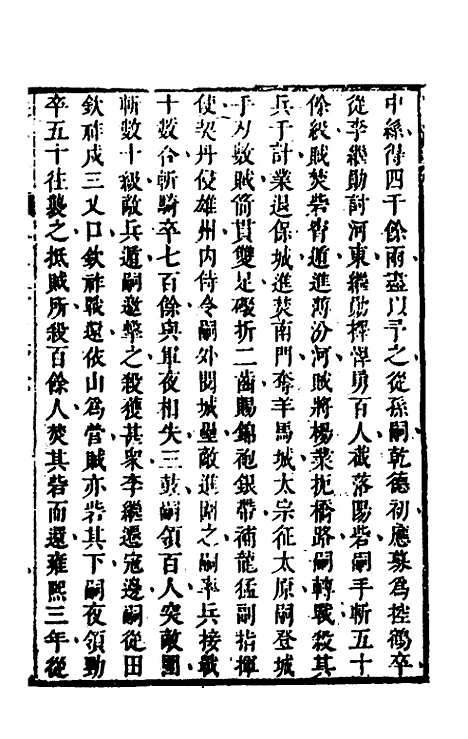 中絲得四千餘兩盡以予之從孫嗣乾德初應募爲控鶴卒
從李繼勛討河東繼勛擇悍勇百人截落陽砦嗣手斬五十
餘級賊焚砦宵遁進薄汾河賊將楊業扼橋路嗣轉戰殺其
兵于計業退保城進焚南門奪羊馬城太宗征太原嗣登城
手刃數賊箭貫雙足礟折二齒賜錦袍銀帶補龍猛副指揮
使契丹侵雄州内侍令嗣外閱城壘敵進圍之嗣率兵接戰
十數合斬騎卒七百餘與軍夜相失三鼓嗣領百人突敵圍
斬數十級敵兵遁嗣邀擊之殺獲甚眾李繼遷寇邊嗣從田
欽祚戍三乂口欽祚戰還依山爲營賊亦砦其下嗣夜領勁
卒五十往襲之抵賊所殺百餘人焚其砦而還雍熙三年從